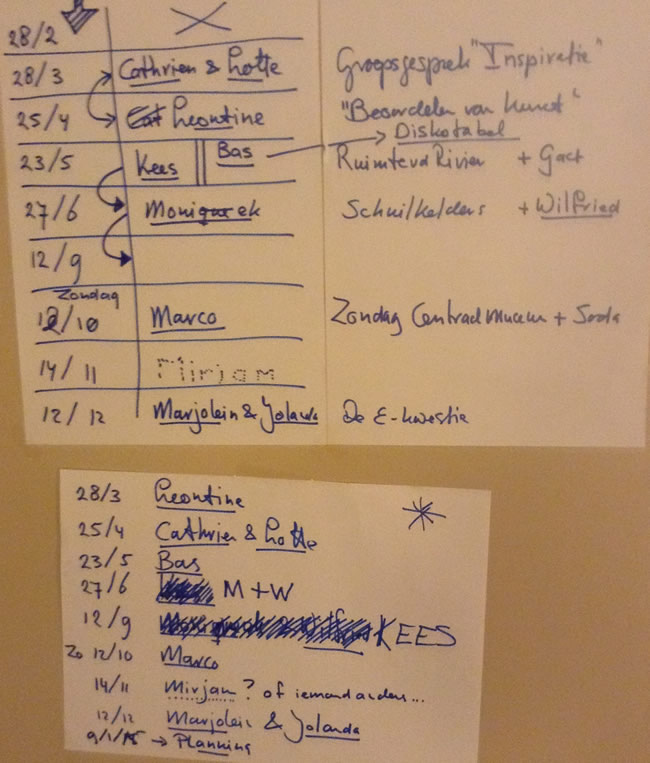 28/2
28/3 Cathrien & Lotte Groepsgesprek "Inspiratie"
25/4 Leontine "Beoordelen van Kunst"
Diskotabel
23/5 Kees Bas Ruimte vd Rivier + Gast
27/6 Moniqueek Schuilkelders + Wilfried
12/9
Zondag
12/10 Marco Zondag Centraal Museum +
14/11 Mirjam
12/12 Marjolein & Yolanda De E-kwestie
28/3 Leontine
25/4 Cathrien & Lotte
23/5 Bas
27/6 M + W
12/9 KEES
Zo 12/10 Marco
14/11 Mirjam? of iemand anders...
12/12 Marjolein & Yolanda
9/1/15 → Planning